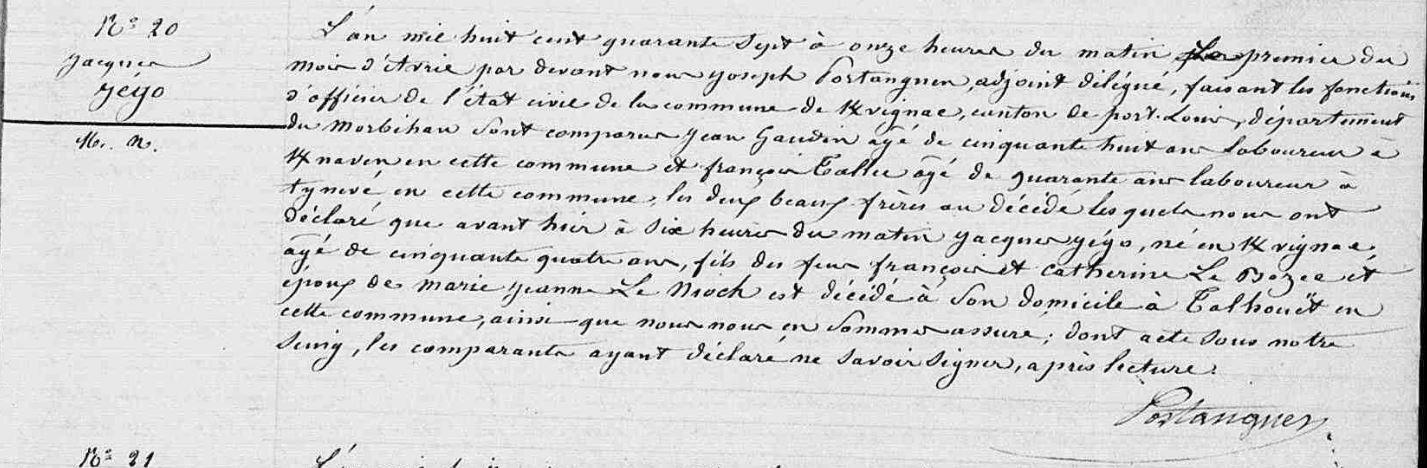 N° 20
Jacques
Yégo
M. N.
L'an mil huit cent quarante sept à onze heures du matin le premier du
mois d'Avril par devant nous Joseph Postanguen, adjoint délégué, faisant les fonctions
d'officier de l'état civil de la commune de Kvignac, canton de port-Louis, département
du Morbihan sont comparus Jean Gaudin âgé de cinquante huit ans laboureur à
Knaven en cette commune et françois Tallec âgé de quarante ans laboureur à
tynevé en cette commune, les deux beaux frères au décédé lesquels nous ont
déclaré que avant hier à six heures du matin Jacques yégo, né en Kvignac,
âgé de cinquante quatre ans, fils des feus françois et Catherine Le Bozec et
époux de marie jeanne Le Nioch est décédé à son domicile à Talhouët en
cette commune, ainsi que nous nous en sommes assuré; dont acte sous notre
seing, les comparants ayant déclaré ne savoir signer, après lecture.
Postanguen
N° 21
L'an